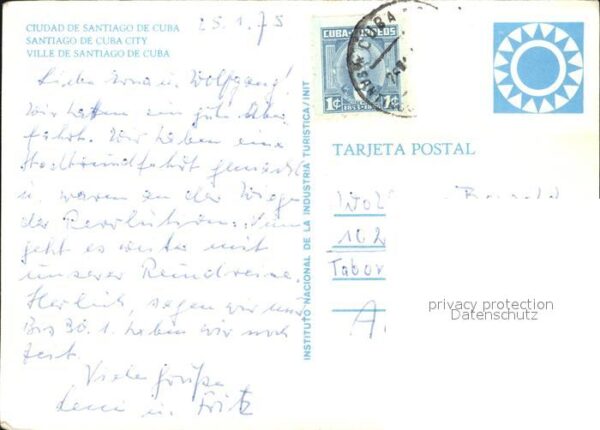 CIUDAD DE SANTIAGO DE CUBA
SANTIAGO DE CUBA CITY
VILLE DE SANTIAGO DE CUBA
25.1.75
Liebe u. Wolfgang!
Wir hatten ein gute
fahrt. Wir haben eine
Stadtrundfahrt gemacht
u. waren an der Wiege
der Revolution.
geht es weiter mit
unserer Rundreise.
Herrlich, sagen wir nur
Bis 30.1. haben wir noch
Zeit.
Viele Grüße
Leni u. Fritz
INSTITUTO NACIONAL DE LA INDUSTRIA TURISTICA/INIT
CUBA CORREOS
1¢ 1¢
CUBA
TARJETA POSTAL
162
Tabor
A
privacy protection
Datenschutz